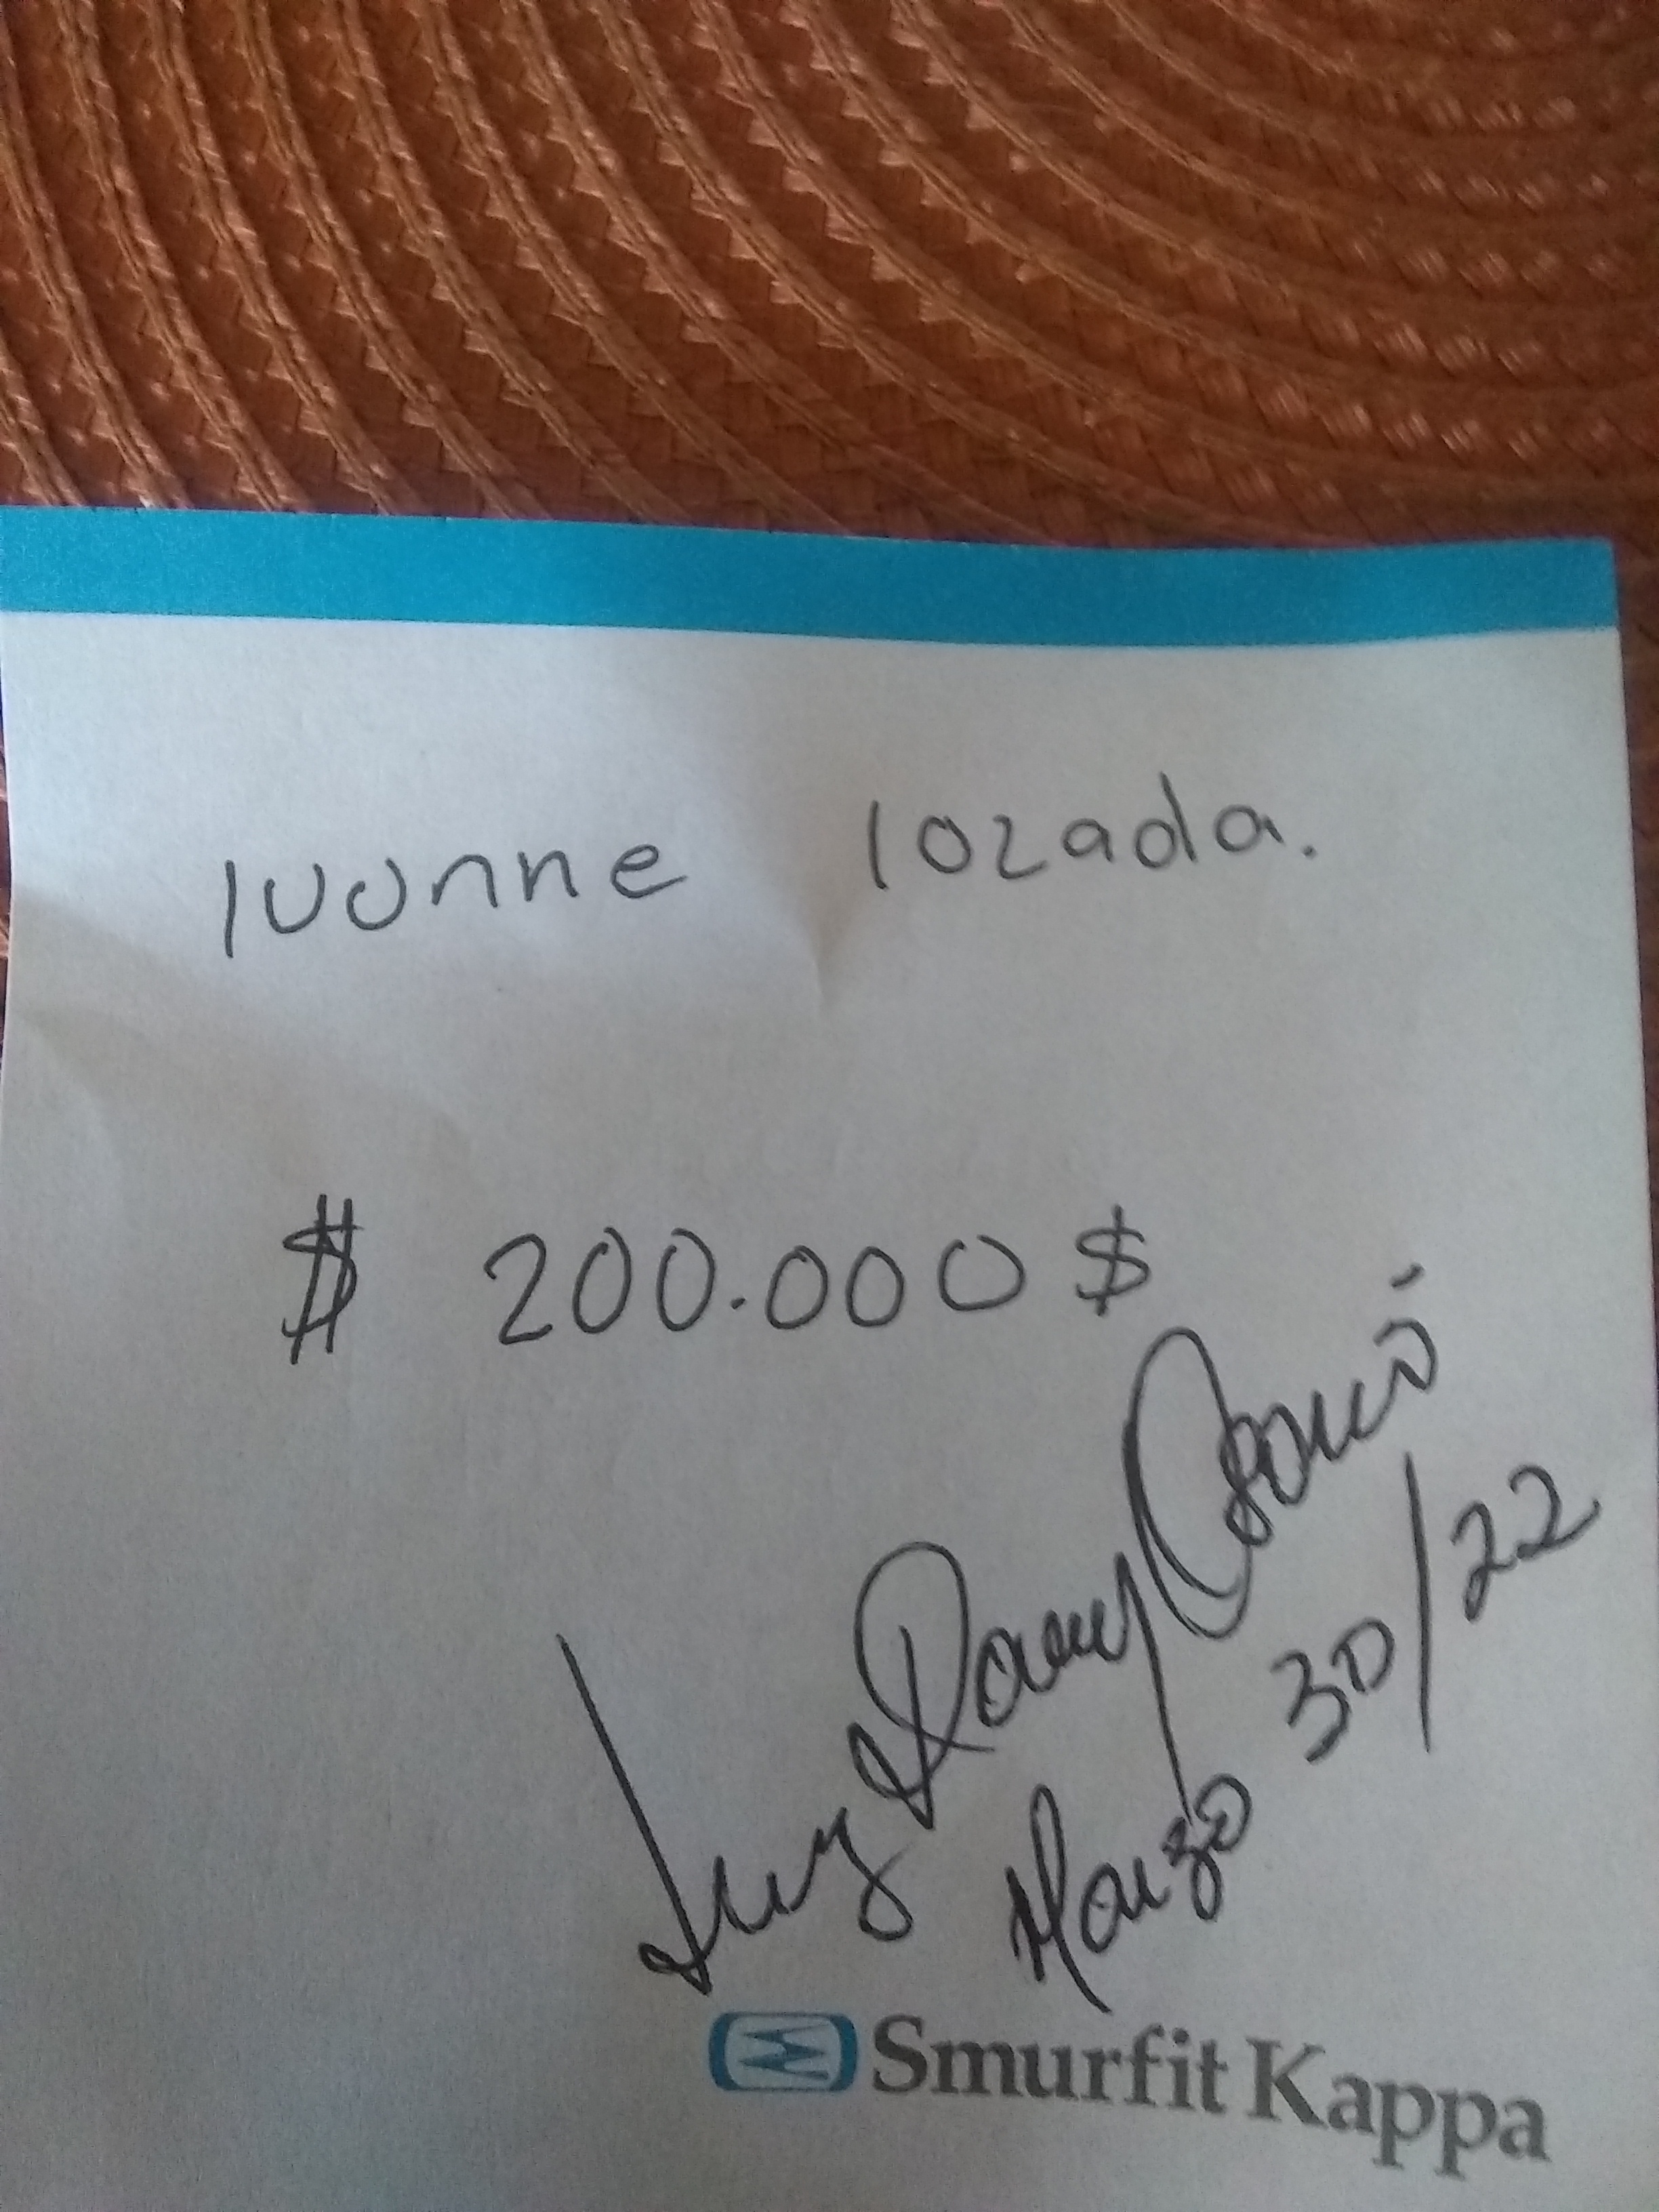 Ivonne lozada.
$ 200.000 $
Luz Dary Osorio
Marzo 30/22
Smurfit Kappa